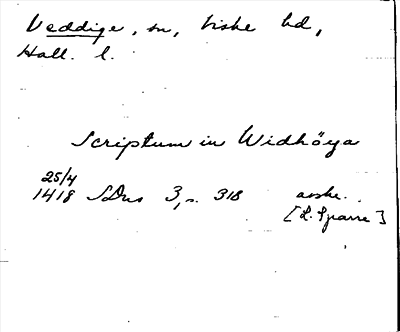 Veddige, sn, Viske hd,
Hall. l.
Scriptum in Widhöga
25/4
1418 SDns 3, s. 318 avskr.
[L. Sparre]